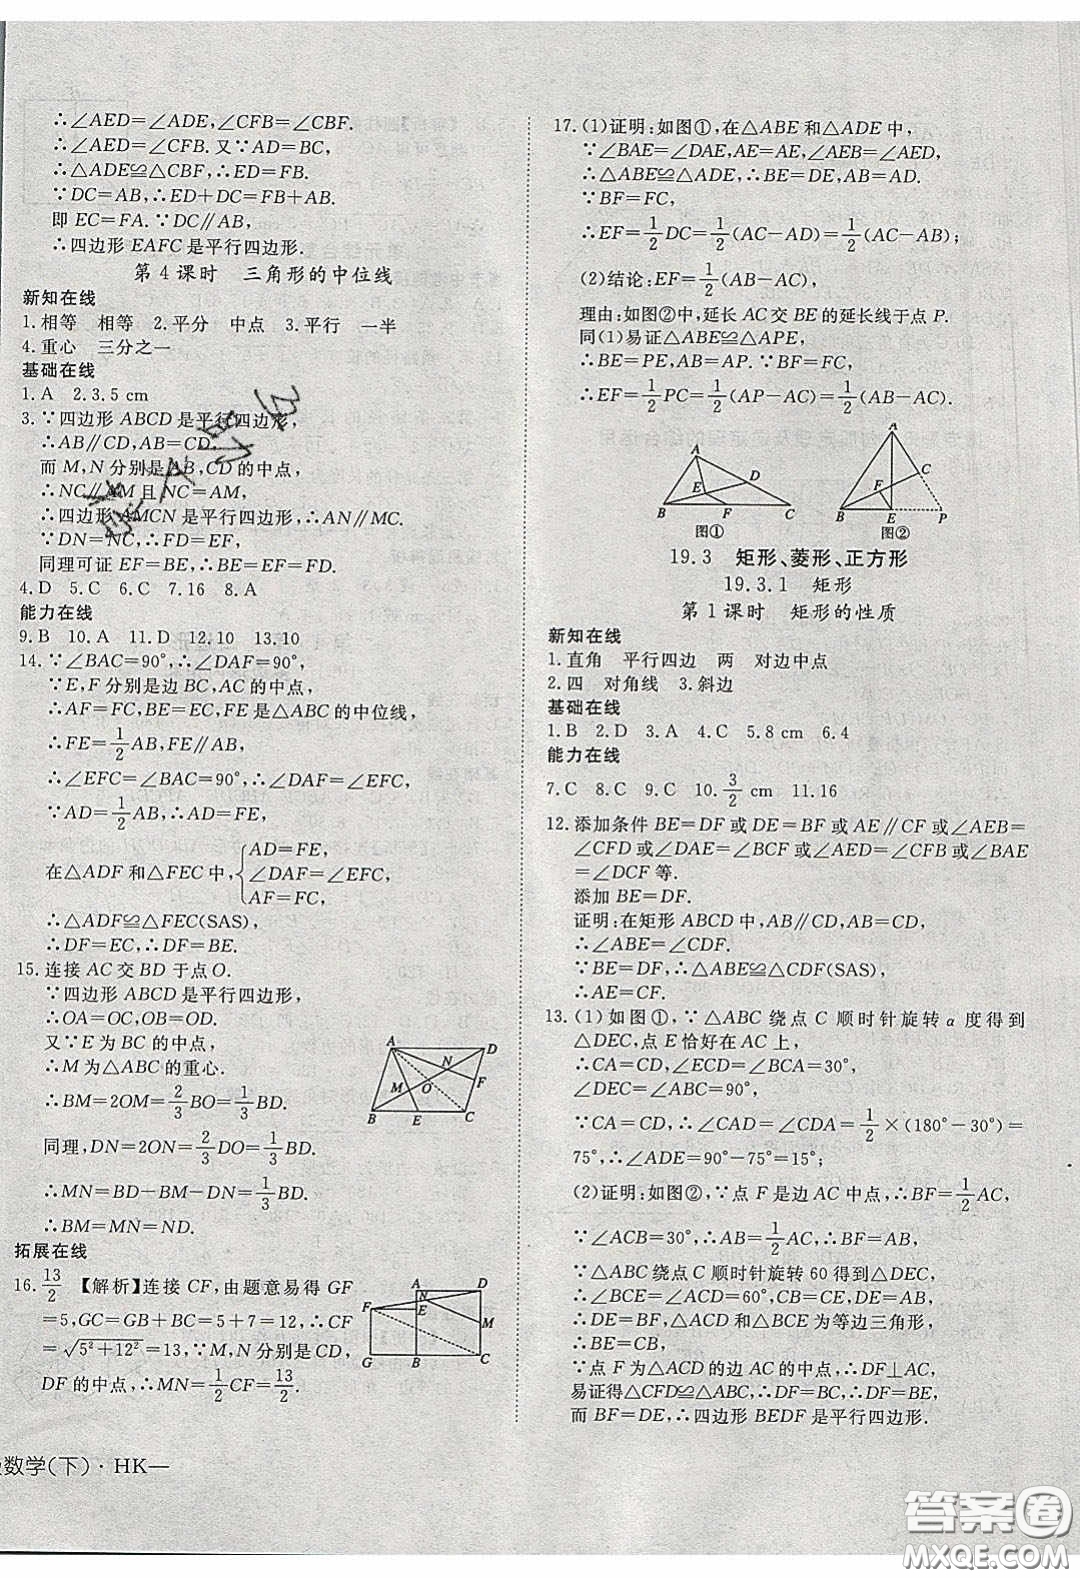 ∴∠AED=∠ADE,∠CFB=∠CBF.
∴∠AED=∠CFB.又∵AD=BC,
∴△ADE≌△CBF,∴ED=FB.
∵DC=AB,∴ED+DC=FB+AB.
即 EC=FA.∵DC∥AB,
∴四边形 EAFC 是平行四边形.
第 4 课时 三角形的中位线
新知在线
1.相等 相等 2.平分 中点 3.平行 一半
4.重心 三分之一
基础在线
1.A 2.3.5 cm
3.∵四边形 ABCD 是平行四边形,
∴AB∥CD,AB=CD.
而 M,N 分别是 AB,CD 的中点,
∴NC∥AM 且 NC=AM,
∴四边形 AMCN 是平行四边形,∴AN∥MC.
∵DN=NC,∴DF=EF.
同理可证 EF=BE,∴EF=BE=DF.
4.D 5.C 6.C 7.16 8.A
能力在线
9.B 10.A 11.D 12.10 13.10
14.∵∠BAC=90°,∴∠DAF=90°,
∵E,F 分别是边 BC,AC 的中点,
∴AF=FC,BE=EC,FE是△ABC的中位线,
∴FE=1/2AB,FE∥AB,
∴∠EFC=∠BAC=90°,∴∠DAF=∠EFC
∵AD=1/2AB,∴AD=FE,
在△ADF 和△FEC 中,{AD=FE,
∠DAF=∠EFC,
AF=FC,
∴△ADF≌△FEC(SAS),
∴DF=EC,∴DF=BE.
15.连接 AC 交 BD 于点 O.
∵四边形 ABCD 是平行四边形,
∴OA=OC,OB=OD.
又∵E 为 BC 的中点,
∴M 为△ABC 的重心.
∴BM=2OM=2/3BO=1/3BD.
同理,DN=2ON=2/3DO=1/3BD.
∴MN=BD-BM-DN=1/3BD.
∴BM=MN=ND.
A D N F M O B E C
拓展在线
16.13/2 【解析】连接 CF,由题意易得 GF
=5,GC=GB+BC=5+7=12,∴CF
=√5²+12²=13,∵M,N分别是CD,
DF 的中点,∴MN=1/2CF=13/2.
A D N F E M G B C
数学(下)·HK—
17.(1)证明:如图①,在△ABE 和△ADE 中,
∵∠BAE=∠DAE,AE=AE,∠AEB=∠AED,
∴△ABE≌△ADE,∴BE=DE,AB=AD.
∵BF=FC,
∴EF=1/2DC=1/2(AC-AD)=1/2(AC-AB).
(2)结论:EF=1/2(AB-AC),
理由:如图②中,延长 AC 交 BE 的延长线于点 P.
同(1)易证△ABE≌△APE,
∴BE=PE,AB=AP.∵BF=FC,
∴EF=1/2PC=1/2(AP-AC)=1/2(AB-AC).
A D E B F C
图①
A C F B E P
图②
19.3 矩形、菱形、正方形
19.3.1 矩形
第 1 课时 矩形的性质
新知在线
1.直角 平行四边 两 对边中点
2.四 对角线 3.斜边
基础在线
1.B 2.D 3.A 4.C 5.8 cm 6.4
能力在线
7.C 8.C 9.C 10.3/2 cm 11.16
12.添加条件 BE=DF 或 DE=BF 或 AE∥CF 或∠AEB=
∠CFD 或∠DAE=∠BCF 或∠AED=∠CFB 或∠BAE
=∠DCF 等.
添加 BE=DF.
证明:在矩形 ABCD 中,AB∥CD,AB=CD,
∴∠ABE=∠CDF.
∵BE=DF,∴△ABE≌△CDF(SAS),
∴AE=CF.
13.(1)如图①,∵△ABC 绕点 C 顺时针旋转 α 度得到
△DEC,点 E 恰好在 AC 上,
∴CA=CD,∠ECD=∠BCA=30°,
∠DEC=∠ABC=90°,
∵CA=CD,∴∠CAD=∠CDA=1/2×(180°-30°)=
75°,∴∠ADE=90°-75°=15°;
(2)证明:如图②,∵点 F 是边 AC 中点,∴BF=1/2AC,
∵∠ACB=30°,∴AB=1/2AC,∴BF=AB.
∵△ABC 绕点 C 顺时针旋转 60 得到△DEC,
∴∠BCE=∠ACD=60°,CB=CE,DE=AB,
∴DE=BF,△ACD 和△BCE 为等边三角形,
∴BE=CB,
∵点 F 为△ACD 的边 AC 的中点,∴DF⊥AC,
易证得△CFD≌△ABC,∴DF=BC,∴DF=BE,
而 BF=DE,∴四边形 BEDF 是平行四边形.
答案圈
MXQE.COM